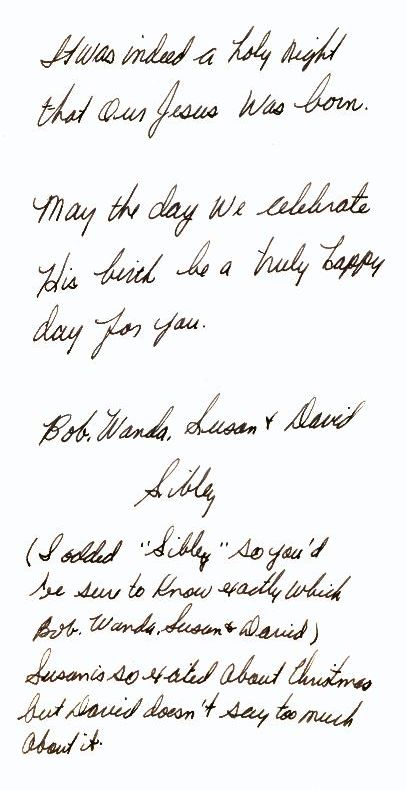 It was indeed a holy night
that our Jesus was born.
May the day we celebrate
His birth be a truly happy
day for you.
Bob, Wanda, Susan & David
Sibley
(I added "Sibley" so you'd
be sure to know exactly which
Bob, Wanda, Susan & David)
Susan is so exited about Christmas
but David doesn't say too much
about it.